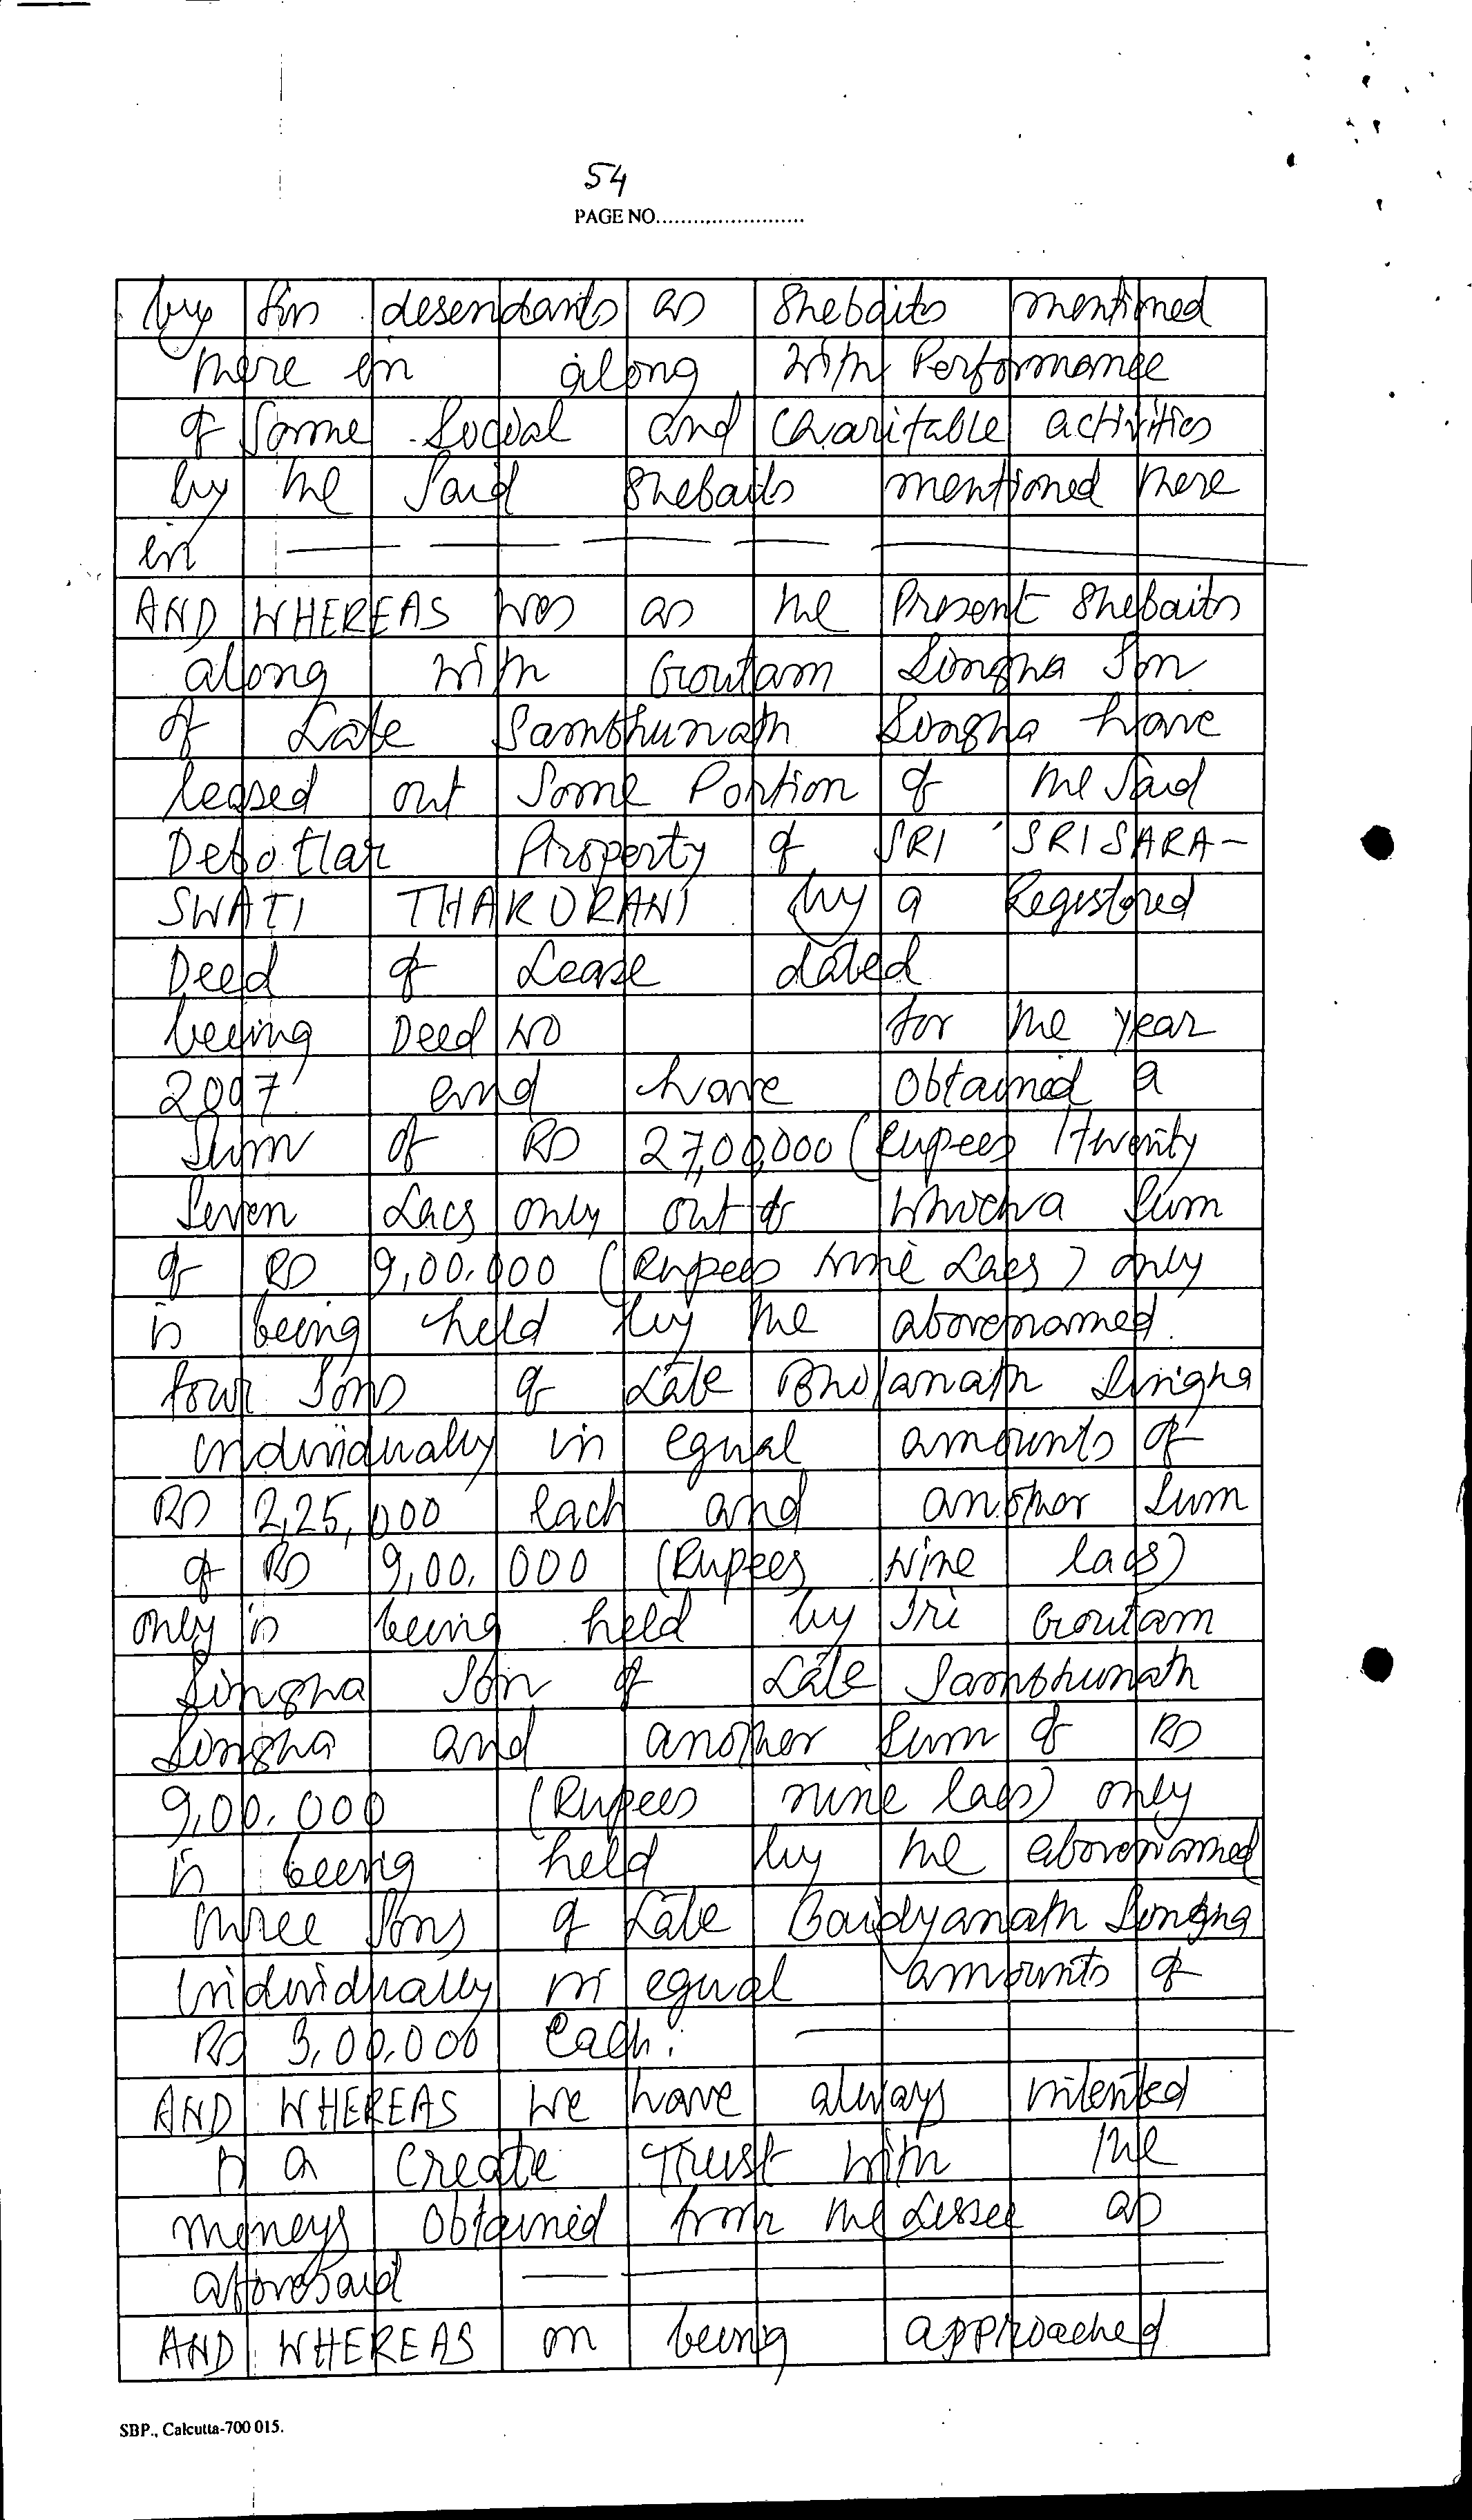 54
PAGE NO........................
by his desendants as Shebaits mentioned
there in along with Performance
of Some Social and Charitable activities
by the Said Shebaits mentioned there
in
AND WHEREAS we as the Present Shebaits
along with Goutam Singha Son
of Late Sambhunath Singha have
leased out Some Portion of the Said
Debottar Property of SRI SRI SARA-
SWATI THAKURANI by a Registered
Deed of Lease dated
being Deed NO for the year
2007 and have obtained a
Sum of Rs 27,00,000 (Rupees twenty
Seven Lacs only out of which a Sum
of Rs 9,00,000 (Rupees nine Lacs) only
is being held by the abovenamed
four Sons of Late Bholanath Singha
individually in equal amounts of
Rs 2,25,000 each and another Sum
of Rs 9,00,000 (Rupees Nine lacs)
only is being held by Sri Goutam
Singha Son of Late Sambhunath
Singha and another Sum of Rs
9,00,000 (Rupees nine lacs) only
is being held by the abovenamed
three Sons of Late Baidyanath Singha
individually in equal amounts of
Rs 3,00,000 Each.
AND WHEREAS we have always intented
to a Create Trust with the
moneys obtained from the Lessee as
aforesaid
AND WHEREAS on being approached
SBP., Calcutta-700 015.